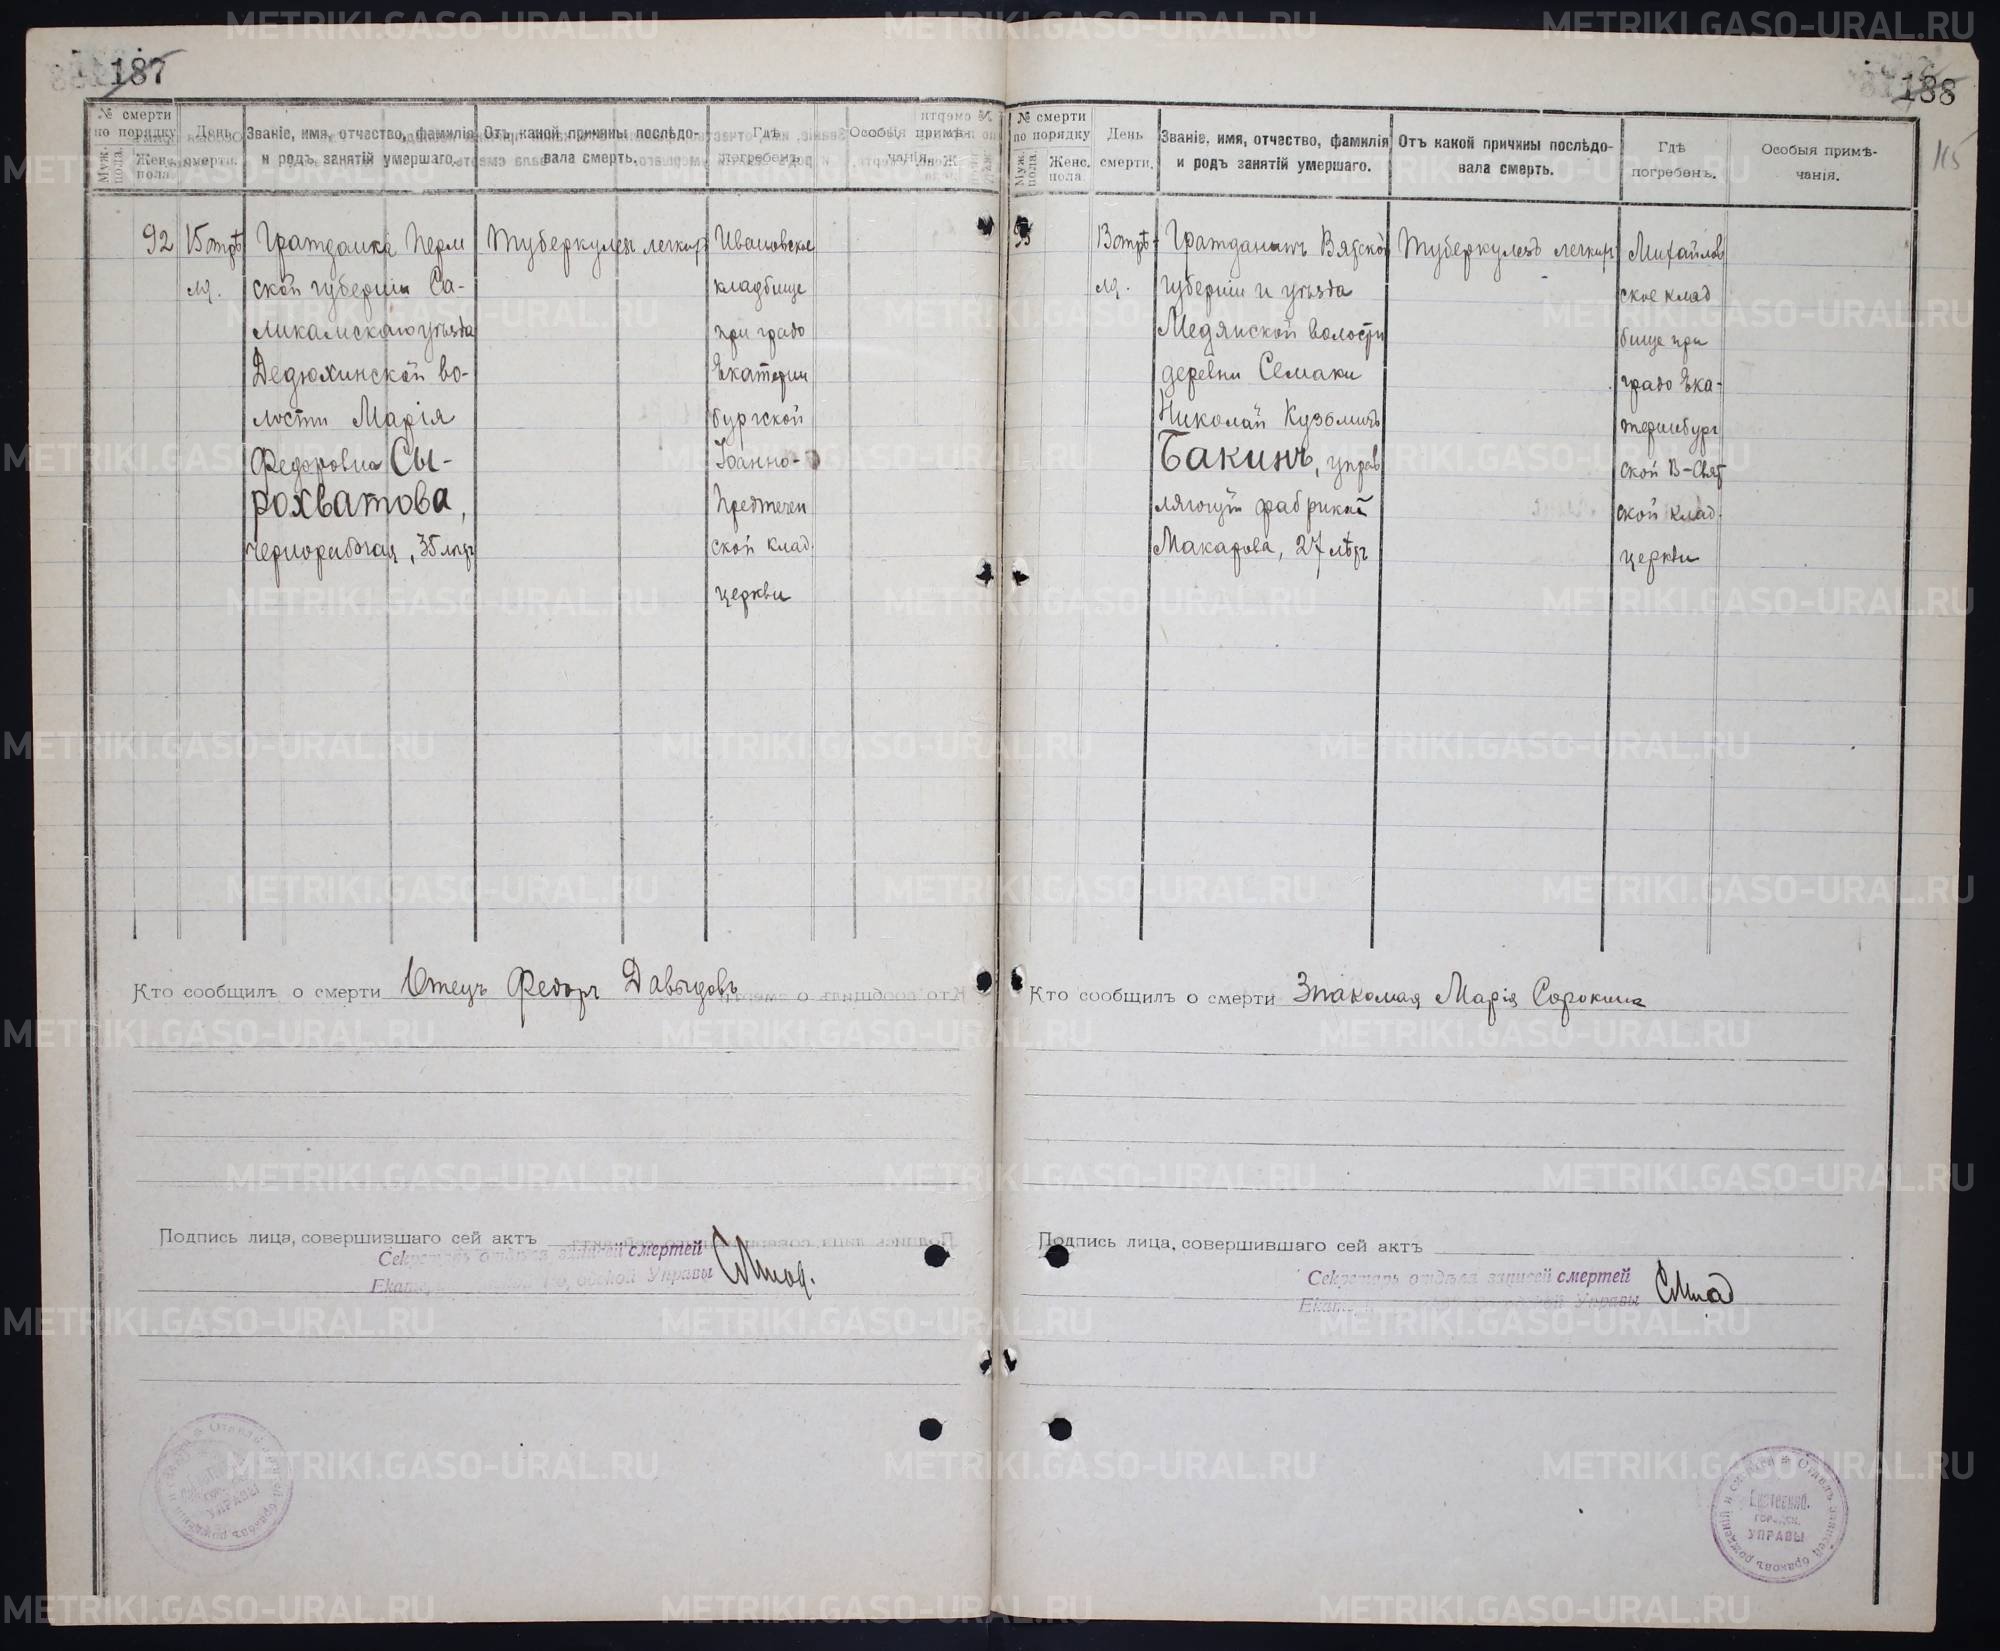 187
№ смерти
по порядку
Муж. пола.
Женс. пола
День смерти.
Званіе, имя, отчество, фамилія
и родъ занятій умершаго.
Отъ какой причины послѣдо-
вала смерть.
Гдѣ
погребенъ.
Особыя примѣ-
чанія.
92
15 апрѣ
ля.
Гражданка Перм
ской губерніи Со-
ликамскаго уѣзда
Дедюхинской во-
лости Марія
Федоровна Сы-
рохватова,
чернорабочая, 35 лѣтъ
Туберкулезъ легкихъ
Ивановское
кладбище
при градо
Екатерин
бургской
Іоанно-
Предтечен
ской клад.
церкви
Кто сообщилъ о смерти Отецъ Федоръ Давыдовъ
Подпись лица, совершившаго сей актъ
Секретарь отдѣла записей смертей
Управы
УПРАВЫ
188
115
№ смерти
по порядку
Муж. пола.
Женс. пола.
День
смерти.
Званіе, имя, отчество, фамилія
и родъ занятій умершаго.
Отъ какой причины послѣдо-
вала смерть.
Гдѣ
погребенъ.
Особыя примѣ-
чанія.
13 апрѣ-
ля.
Гражданинъ Вятской
губерніи и уѣзда
Медянской волости
деревни Семаки
Николай Кузьмичъ
Бакинъ, управ
ляющій фабрикой
Макарова, 27 лѣтъ
Туберкулезъ легкихъ
Михайлов
ское клад
бище при
градо Ека-
теринбург
ской В-Свят
ской клад.
церкви
Кто сообщилъ о смерти Знакомая Марія Сорокина
Подпись лица, совершившаго сей актъ
Секретарь отдѣла записей смертей
Управы
Отдѣлъ записей браковъ рожденій и смертей
Екатеринб.
ГОРОДСК.
УПРАВЫ
METRIKI.GASO-URAL.RU